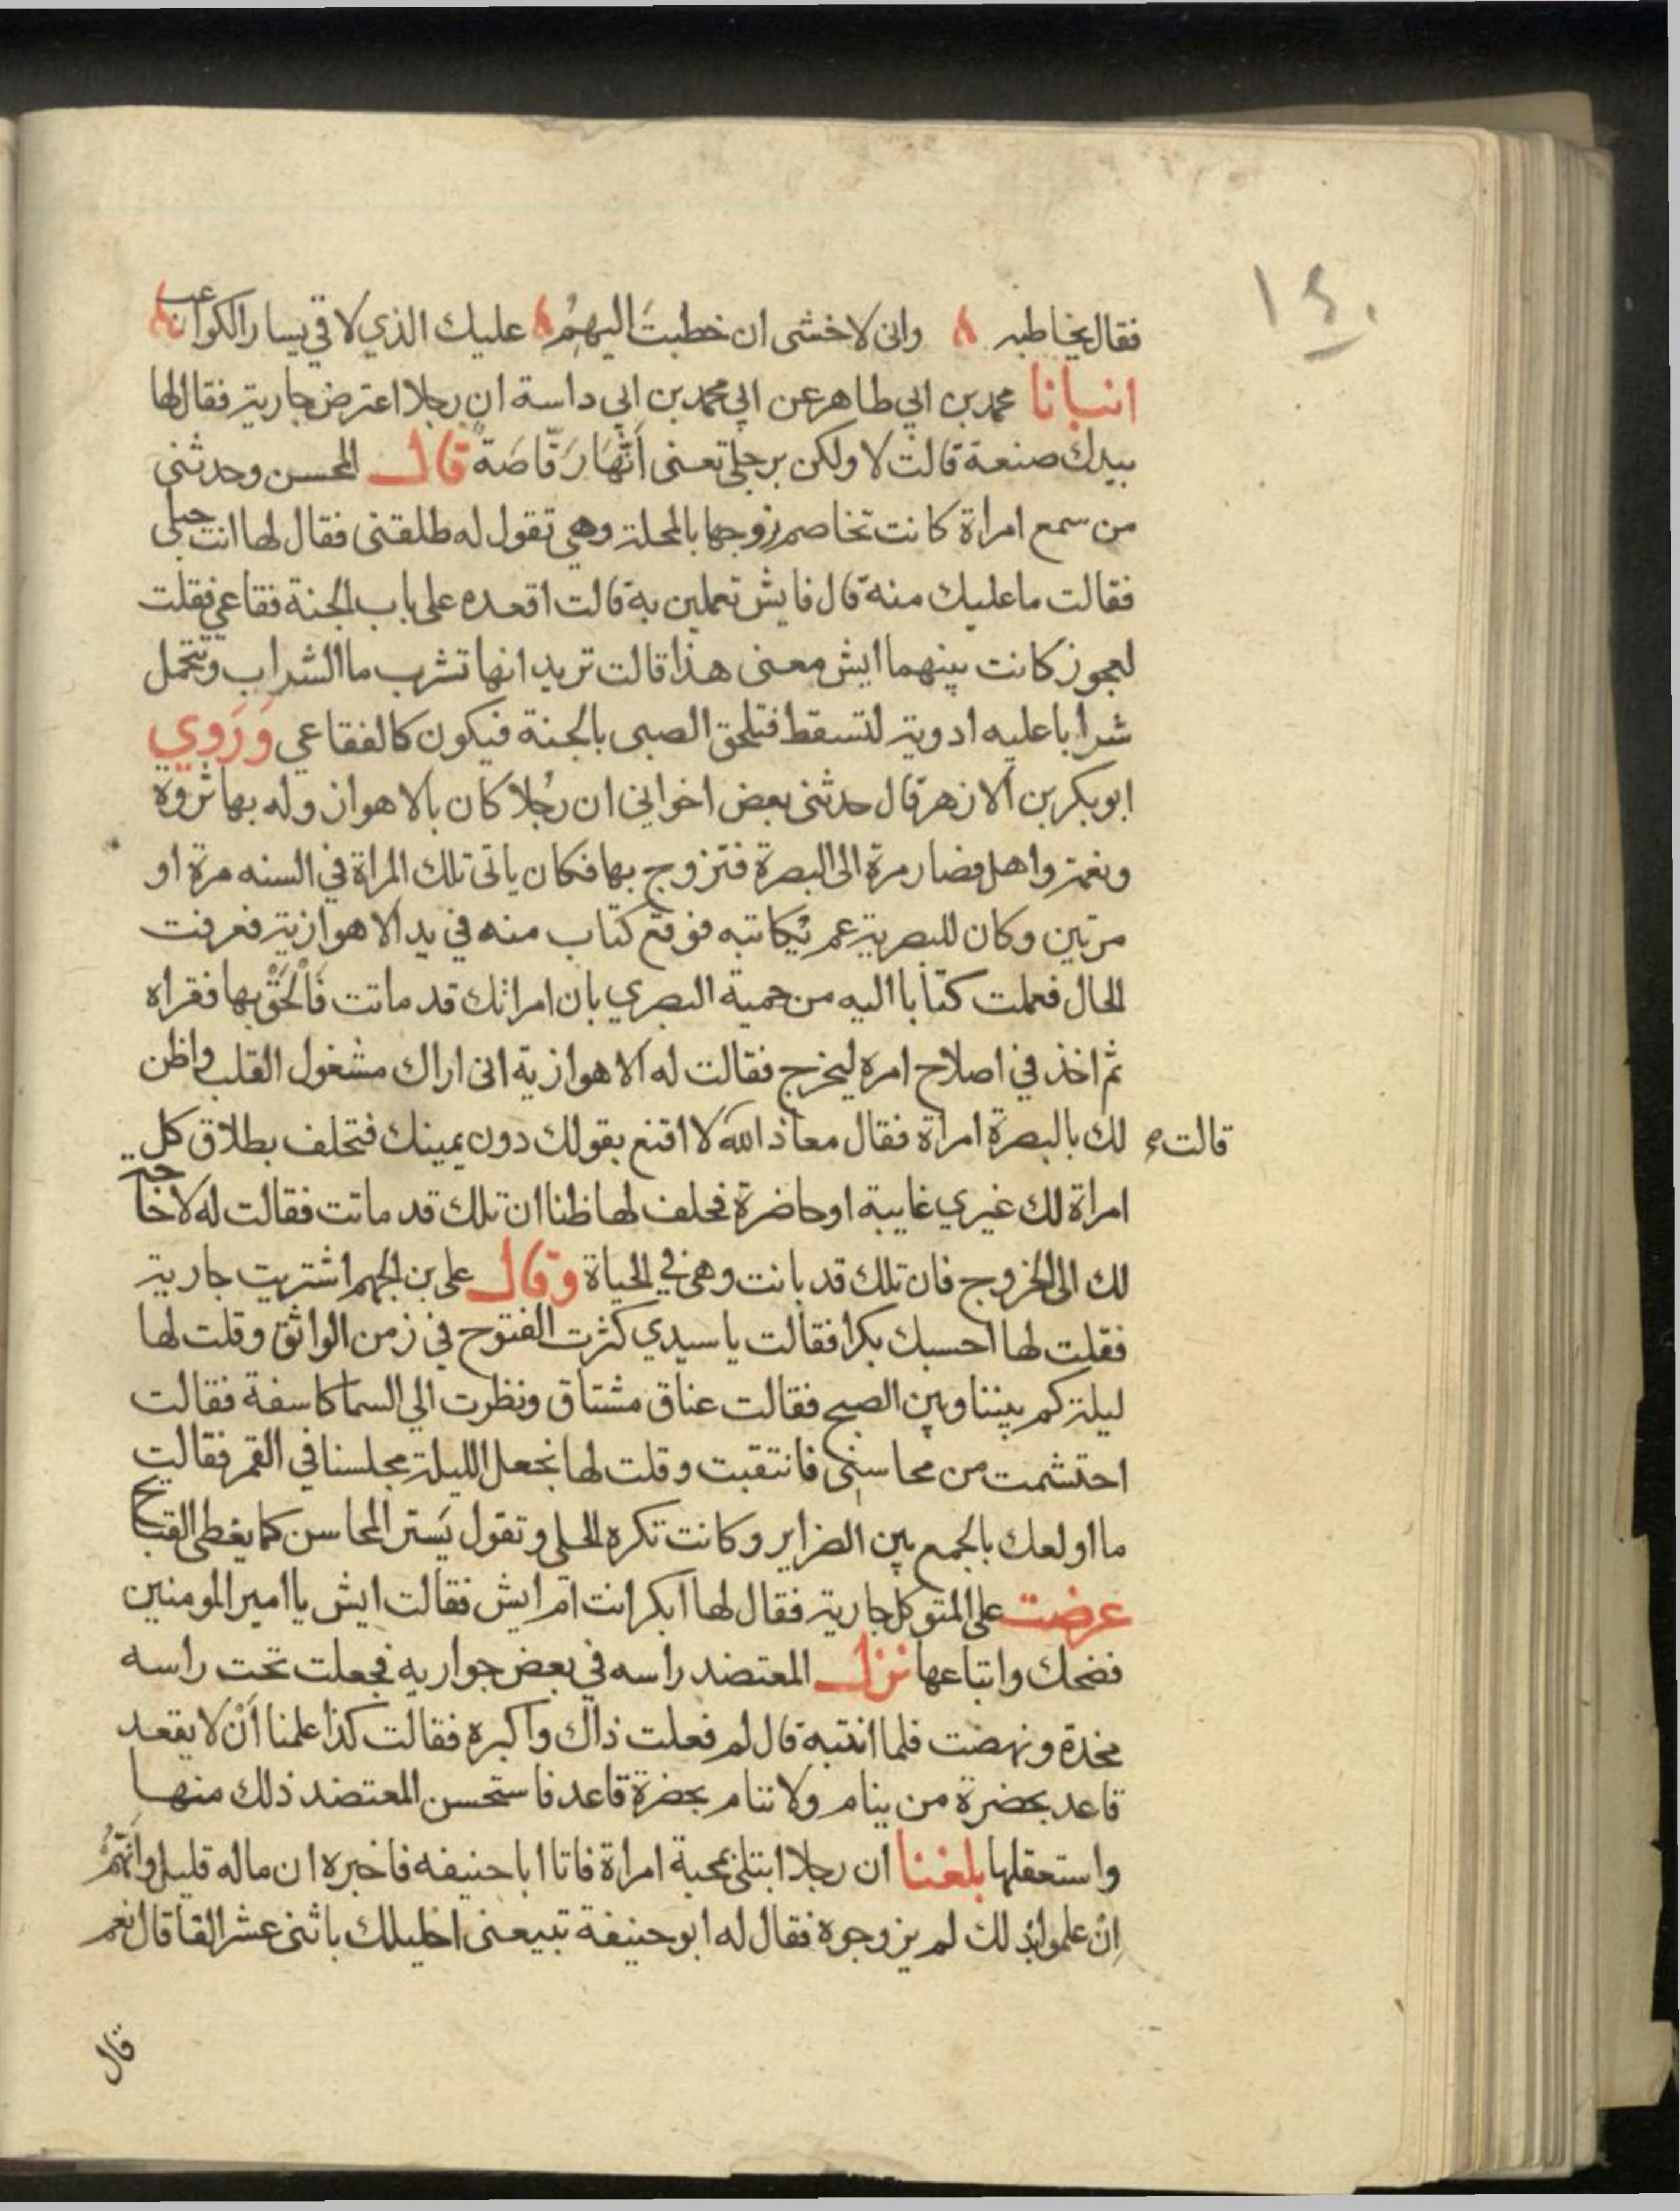 ١٤٠
فقال يخاطبه وانى لاخشى ان خطبت اليهم عليك الذي لاقي يسار الكواعب
انبانا محمد بن ابي طاهر عن ابي محمد بن ابي داسة ان رجلا اعترض جارية فقال لها
بيدك صنعة قالت لا ولكن برجلي تعنى اَنَّهَا رَقّاصَةً قال المحسن وحدثنى
من سمع امراة كانت تخاصم زوجها بالمحلة وهي تقول له طلقنى فقال لها انت حبلى
فقالت ما عليك منه قال فايش تعملين به قالت اقعده على باب الجنة فقاعي فقلت
لعجوز كانت بينهما ايش معنى هذا قالت تريد انها تشرب ما الشراب وتتحمل
شرابا عليه ادوية لتسقط فتلحق الصبى بالجنة فيكون كالفقاعي وَرَوي
ابو بكر بن الازهر قال حدثنى بعض اخواني ان رجُلا كان بالاهواز وله بها ثروة
ونعمة واهل فضار مرة الى البصرة فتزوج بها فكان ياتى تلك المراة في السنه مرة او
مرتين وكان للبصرية عم يُكاتبه فوقع كتاب منه في يد الاهوازية فعرفت
الحال فعملت كتابا اليه من حمية البصري بان امراتك قد ماتت فَاْلحَقْ بها فقراه
ثم اخذ في اصلاح امره ليخرج فقالت له الاهوازية انى اراك مشغول القلب واظن
لك بالبصرة امراة فقال معاذ الله لا اقنع بقولك دون يمينك فتحلف بطلاق كل
قالت
امراة لك غيري غايبة او حاضرة فحلف لها ظنا ان تلك قد ماتت فقالت له لا حاجة
لك الى الخروج فان تلك قد بانت وهي في الحياة وقال على بن الجهم اشتريت جارية
فقلت لها احسبك بكرا فقالت يا سيدي كثرت الفتوح في زمن الواثق وقلت لها
ليلة كم بيننا وبين الصبح فقالت عناق مشتاق ونظرت الي السما كاسفة فقالت
احتشمت من محاسنى فانتقبت وقلت لها نجعل الليلة مجلسنا في القمر فقالت
ما اولعك بالجمع بين الضراير وكانت تكره الحلى وتقول يَستر المحاسن كما يغطى القبايح
عرضت على المتوكل جارية فقال لها ابكر انت ام ايش فقالت ايش يا امير المومنين
فضحك وابتاعها نزل المعتضد راسه في بعض جواريه فجعلت تحت راسه
مخدة ونهضت فلما انتبه قال لم فعلت ذاك واكبره فقالت كذا علمنا اَنْ لا يقعد
قاعد بحضرة من ينام ولا تنام بحضرة قاعد فاستحسن المعتضد ذلك منها
واستعقلها بلغنا ان رجلا ابتلى بمحبة امراة فاتا ابا حنيفه فاخبره ان ماله قليل وانهم
اِنْ علموا بذلك لم يزوجوه فقال له ابو حنيفة تبيعنى احليلك باثنى عشر الفا قال نعم
قال